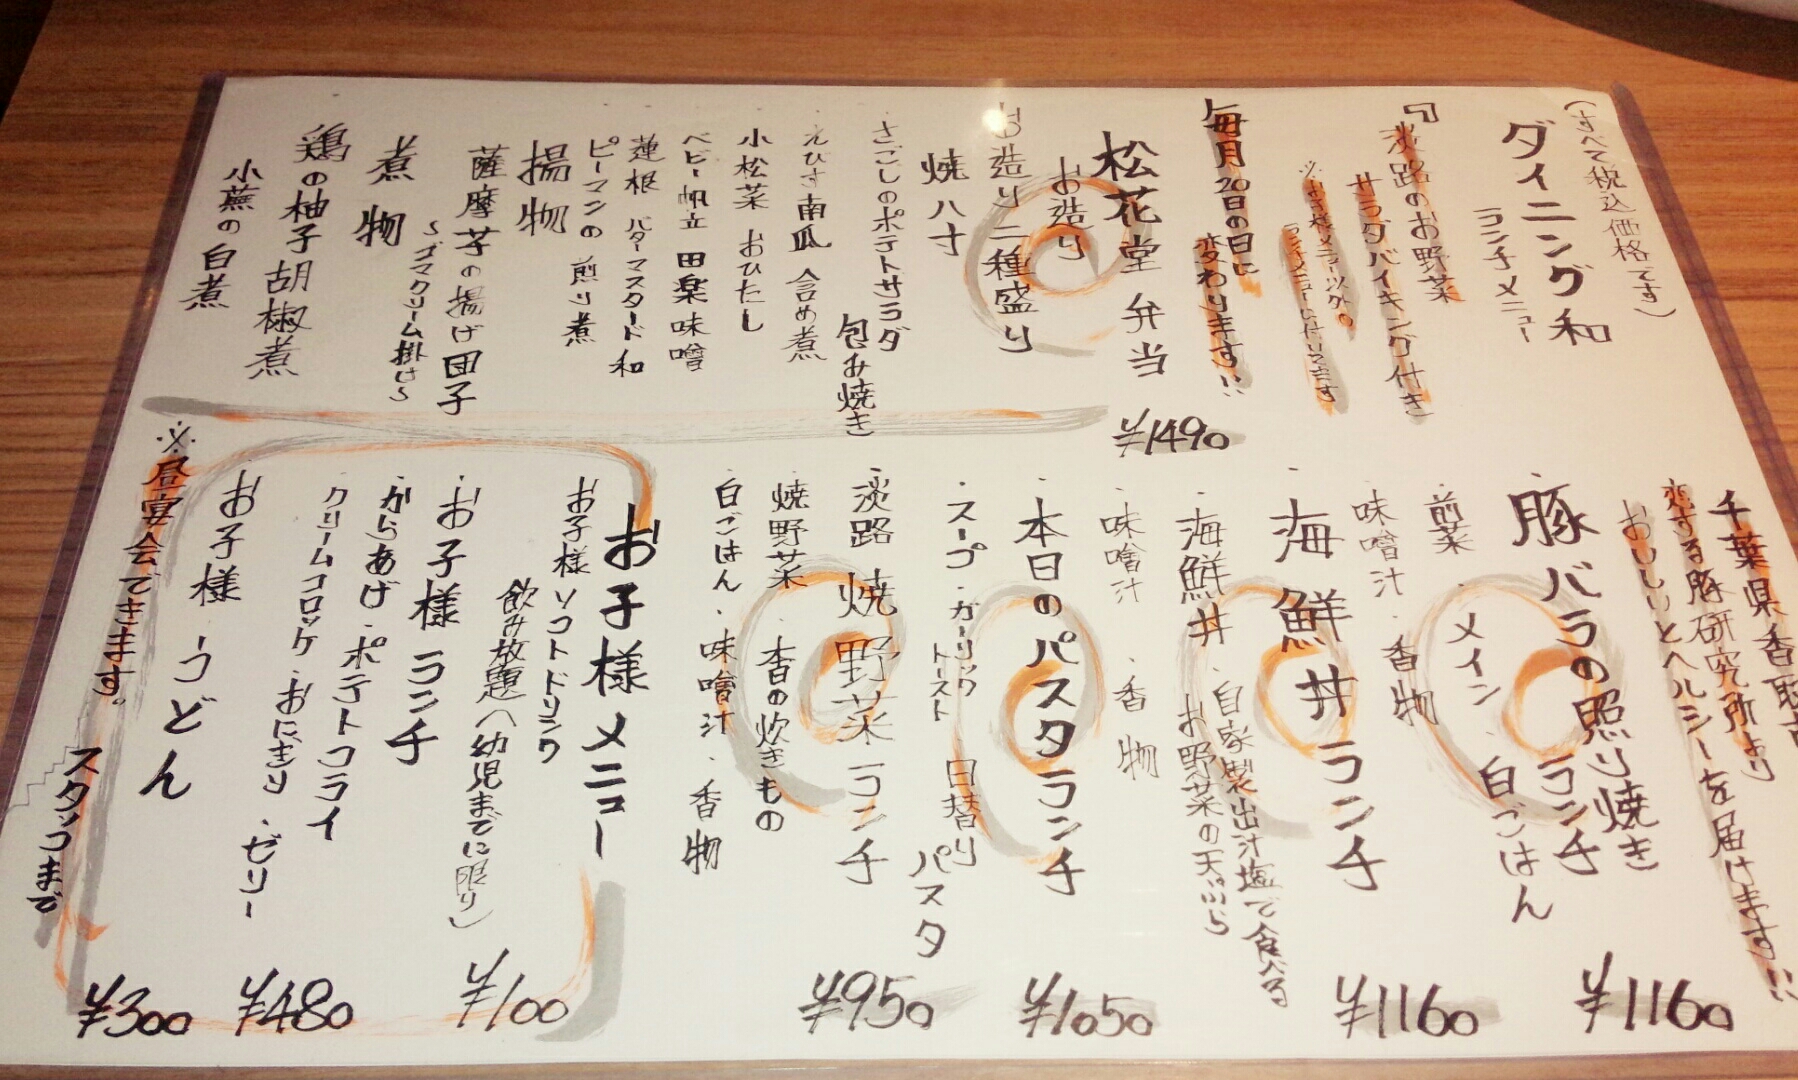 (すべて税込価格です)
ダイニング和
ランチメニュー
『淡路のお野菜
サラダバイキング付き
※お子様メニュー以外の
ランチメニューに付いてきます
毎月20日の日に
変わります!!
松花堂弁当
¥1490
お造り
お造り二種盛り
焼八寸
さごしのポテトサラダ
包み焼き
えびす南瓜 含め煮
小松菜 おひたし
ベビー帆立 田楽味噌
蓮根 バターマスタード和
ピーマンの煎り煮
揚物
薩摩芋の揚げ団子
~ゴマクリーム掛け~
煮物
鶏の柚子胡椒煮
小蕪の白煮
千葉県香取市
恋する豚研究所より
おいしいとヘルシーを届けます!!
豚バラの照り焼き
ランチ
¥1160
・前菜 ・メイン ・白ごはん
・味噌汁 ・香物
・海鮮丼ランチ
¥1160
・海鮮丼 ・自家製出汁塩で食べる
お野菜の天ぷら
・味噌汁 ・香物
・本日のパスタランチ
¥1050
・スープ ・ガーリック
トースト
・日替り
パスタ
・淡路焼野菜ランチ
¥950
・焼野菜 ・本日の炊きもの
・白ごはん ・味噌汁 ・香物
お子様メニュー
・お子様ソフトドリンク
飲み放題(幼児までに限り)
¥100
・お子様ランチ
¥480
からあげ・ポテトフライ
クリームコロッケ・おにぎり・ゼリー
・お子様うどん
¥300
※昼宴会できます。
スタッフまで